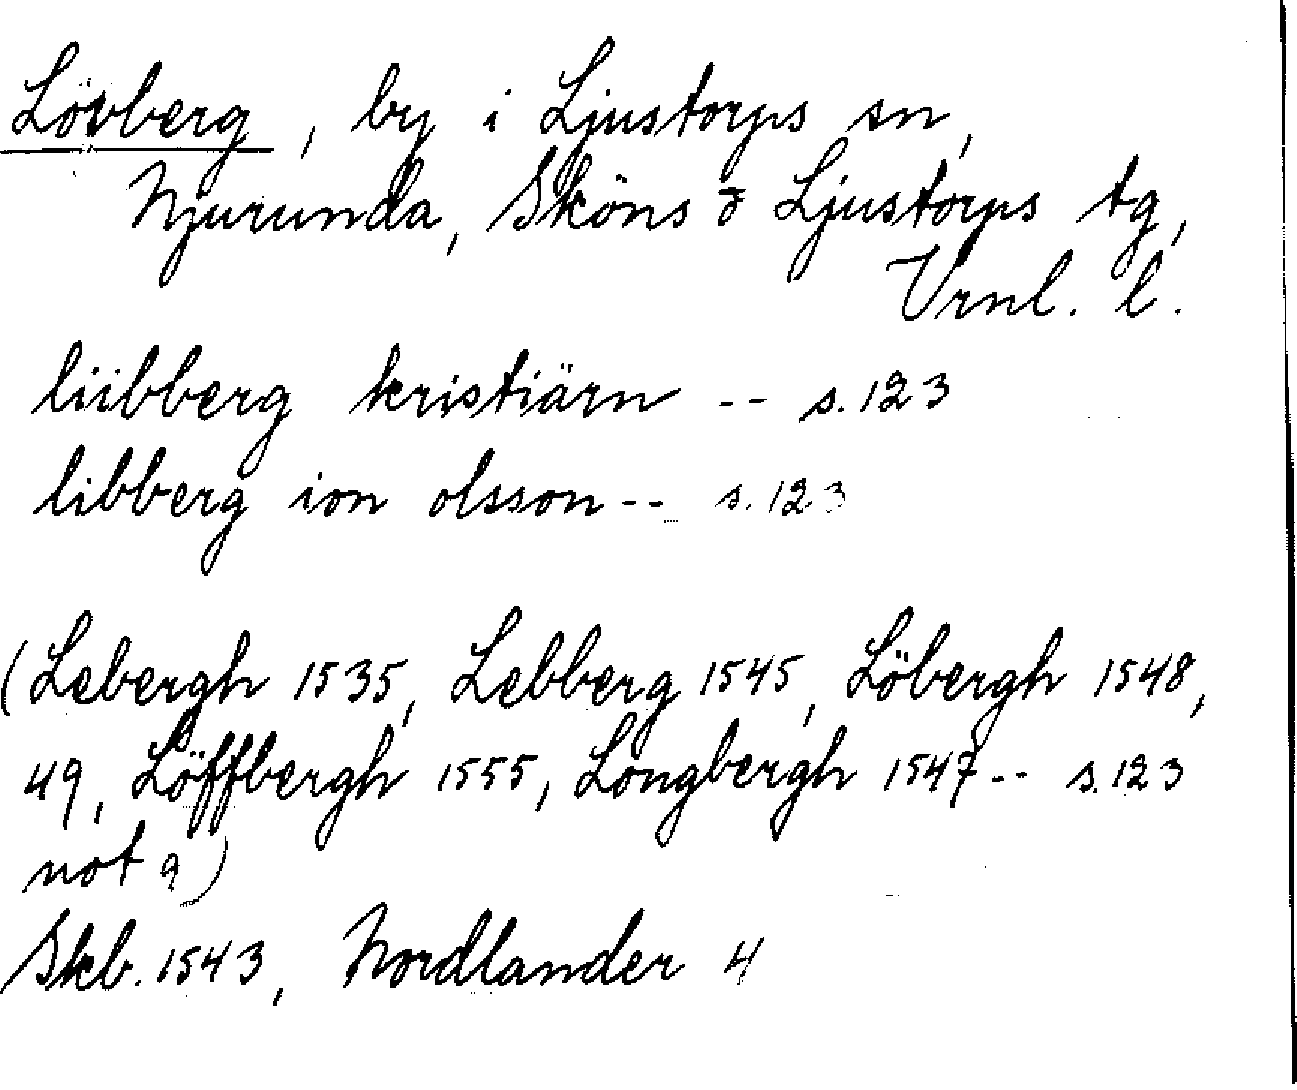 Lövberg, by i Ljustorps sn,
Njurunda, Sköns o Ljustorps tg,
Vrnl. l.
liibberg kristiärn -- s. 123
libberg ion olsson -- s. 123
(Lebergh 1535, Lebberg 1545, Löbergh 1548,
49, Löffbergh 1555, Longbergh 1547 -- s. 123
not 9)
Skb. 1543, Nordlander 4